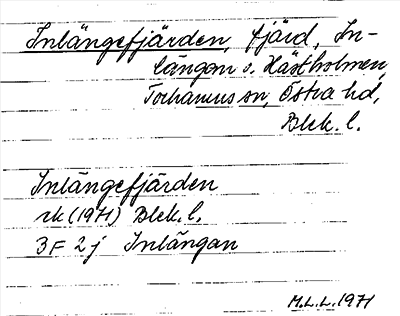 Inlängefjärden, fjärd, In-
längan o. Hästholmen,
Torhamns sn, Östra hd,
Blek. l.
Inlängefjärden
rk (1971) Blek. l.
3F 2j Inlängan
M.L.L. 1971